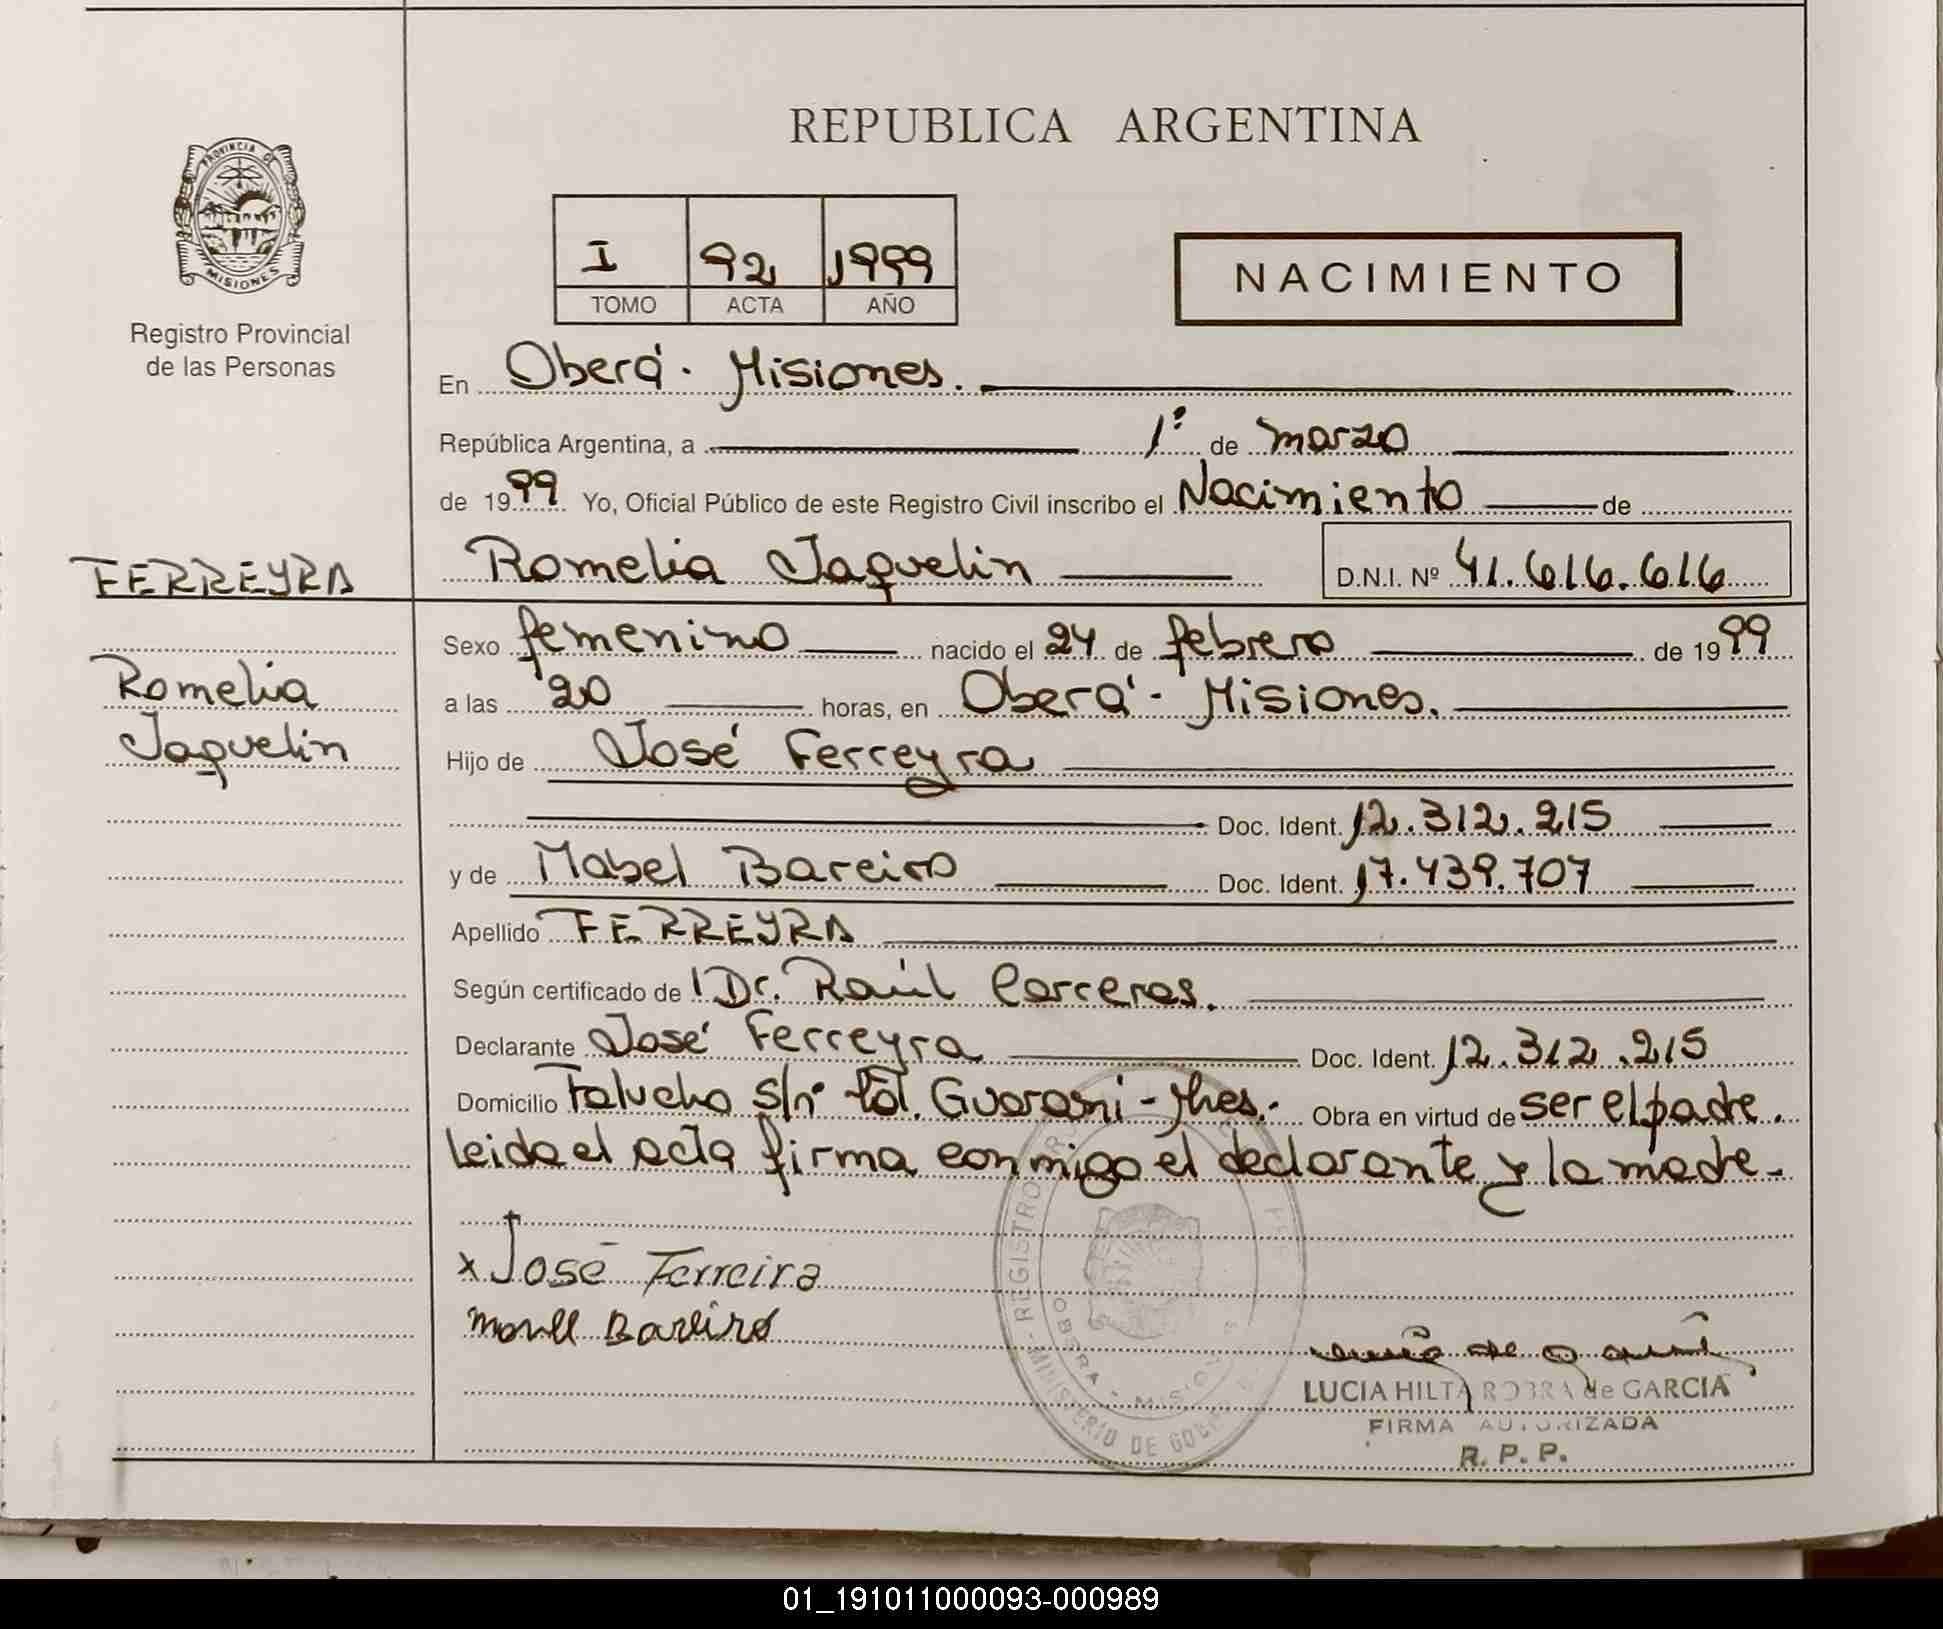 REPUBLICA ARGENTINA
PROVINCIA DE
MISIONES
Registro Provincial
de las Personas
I 92 1999
TOMO ACTA AÑO
NACIMIENTO
En Oberá - Misiones.
República Argentina, a 1º de marzo
de 1999 Yo, Oficial Público de este Registro Civil inscribo el Nacimiento de
FERREYRA
Romelia Jaquelin D.N.I. Nº 41.616.616
Romelia
Jaquelin
Sexo femenino nacido el 24 de febrero de 1999
a las 20 horas, en Oberá - Misiones.
Hijo de José Ferreyra
Doc. Ident. 12.312.215
y de Mabel Bareiro Doc. Ident. 17.439.707
Apellido FERREYRA
Según certificado de Dr. Raúl Carreras.
Declarante José Ferreyra Doc. Ident. 12.312.215
Domicilio Falucho s/nº Guaraní - Mnes.- Obra en virtud de ser el padre.
Leida el acta firma conmigo el declarante y la madre.
x José Ferreira
Bareiro
REGISTRO
OBERA - MISIONES
MINISTERIO DE GOB
LUCIA HILTA de GARCIA
FIRMA AUTORIZADA
R. P. P.
01_191011000093-000989